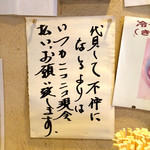 代貝して不仲に
なるよりは
いつもニコニコ現金
払い、お願い致します。
冷
(き